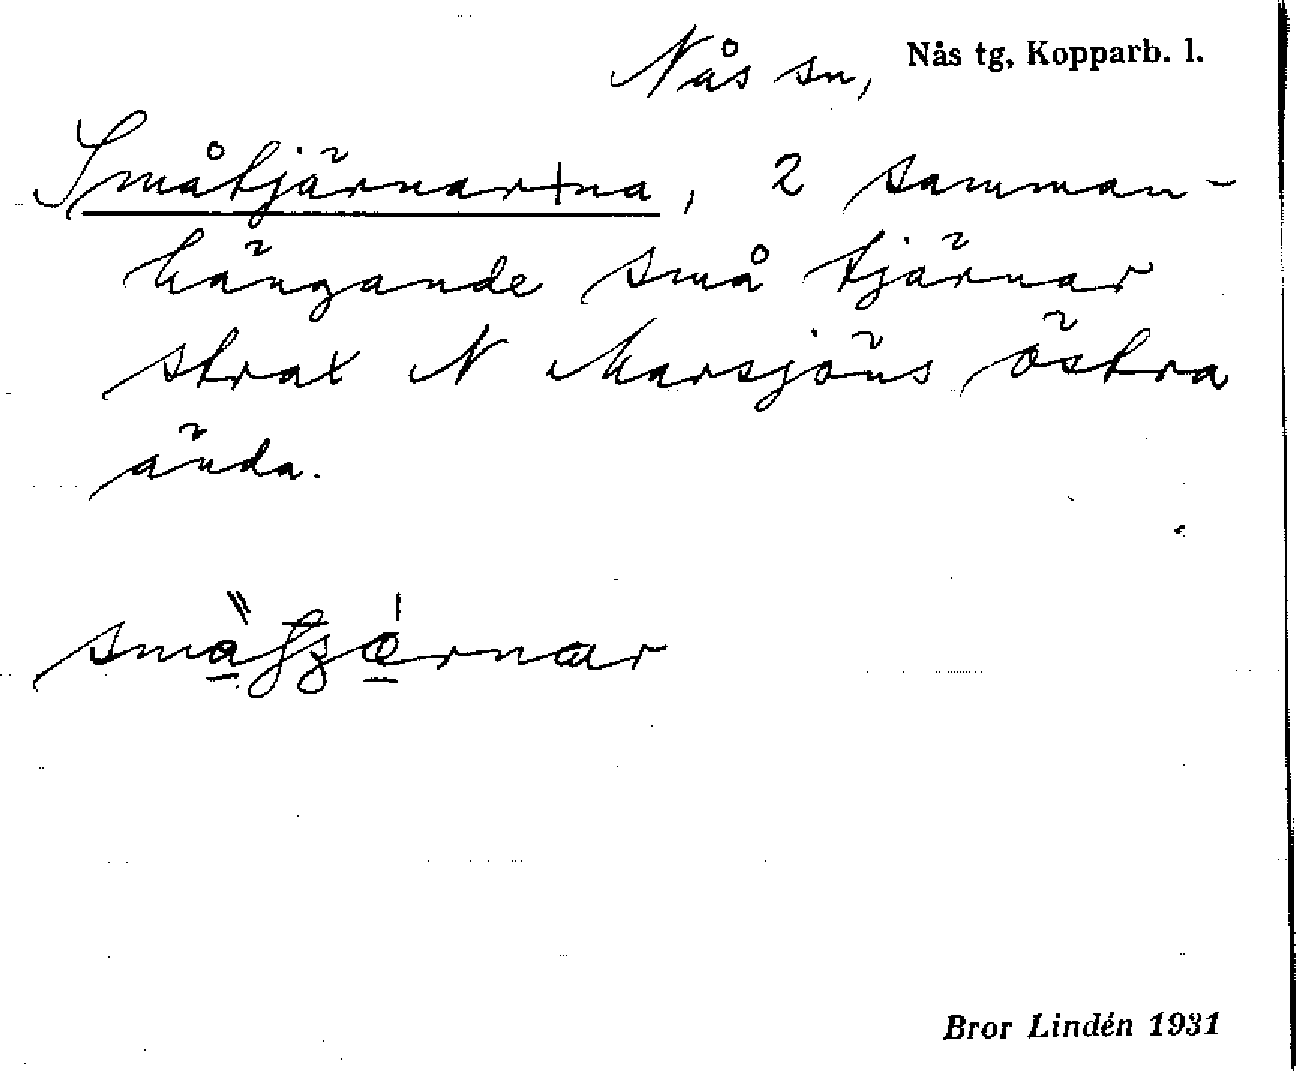 Nås sn, Nås tg, Kopparb. l.
Småtjärnar+na, 2 samman-
hängande små tjärnar
strax N Marsjöns östra
ända.
Bror Lindén 1931